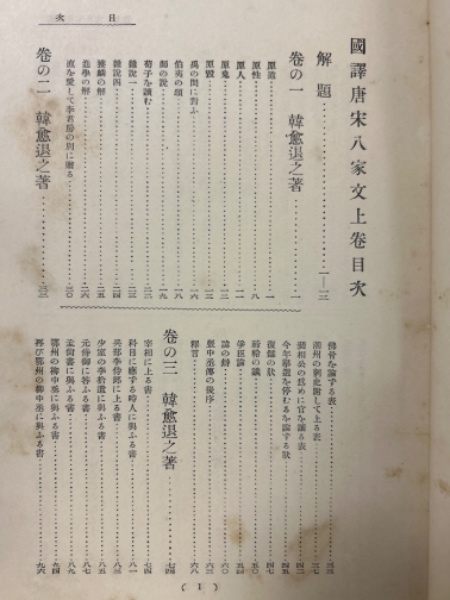 目次
國譯唐宋八家文上卷目次
解題……一—三
卷の一 韓愈退之著……一
原道……一
原性……八
原人……一一
原鬼……一二
原毀……
禹の問に對ふ……一六
伯夷の頌……一八
師の說……一九
荀子を讀む……二二
雜說一……二三
雜說四……二四
獲麟の解……二五
進學の解……二六
直を愛して李君房の別に贈る……三〇
卷の二 韓愈退之著……三三
佛骨を論ずる表……三三
潮州の刺史謝して上る表……三七
官を讓る表
今年擧選を停むるを論ずる狀
復讎の狀
禘祫の議……五〇
爭臣論……五四
諱の辯……六〇
張中丞傳の後序……六三
釋言……六八
卷の三 韓愈退之著……七四
宰相に上る書……七四
科目に應ずる時人に與ふる書……八一
兵部李侍郎に上る書……八三
少室の李拾遺に與ふる書……八五
元侍御に答ふる書……八七
孟尙書に與ふる書……八八
鄂州の柳中丞に與ふる書……九四
再び鄂州の柳中丞に與ふる書……九六
(1)